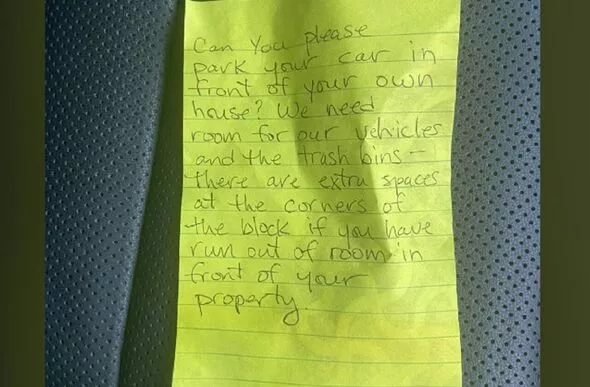 Can You please
park your car in
front of your own
house? We need
room for our vehicles
and the trash bins -
there are extra spaces
at the corners of
the block if you have
run out of room in
front of your
property.